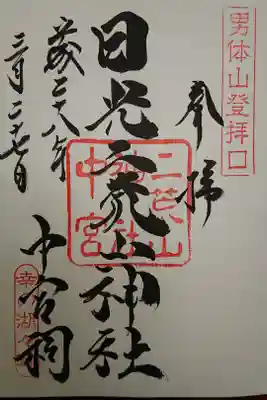 男体山登拝口
奉拝
日光二荒山神社
二荒山
神社
中宮
中宮祠
平成二十八年
三月二十七日